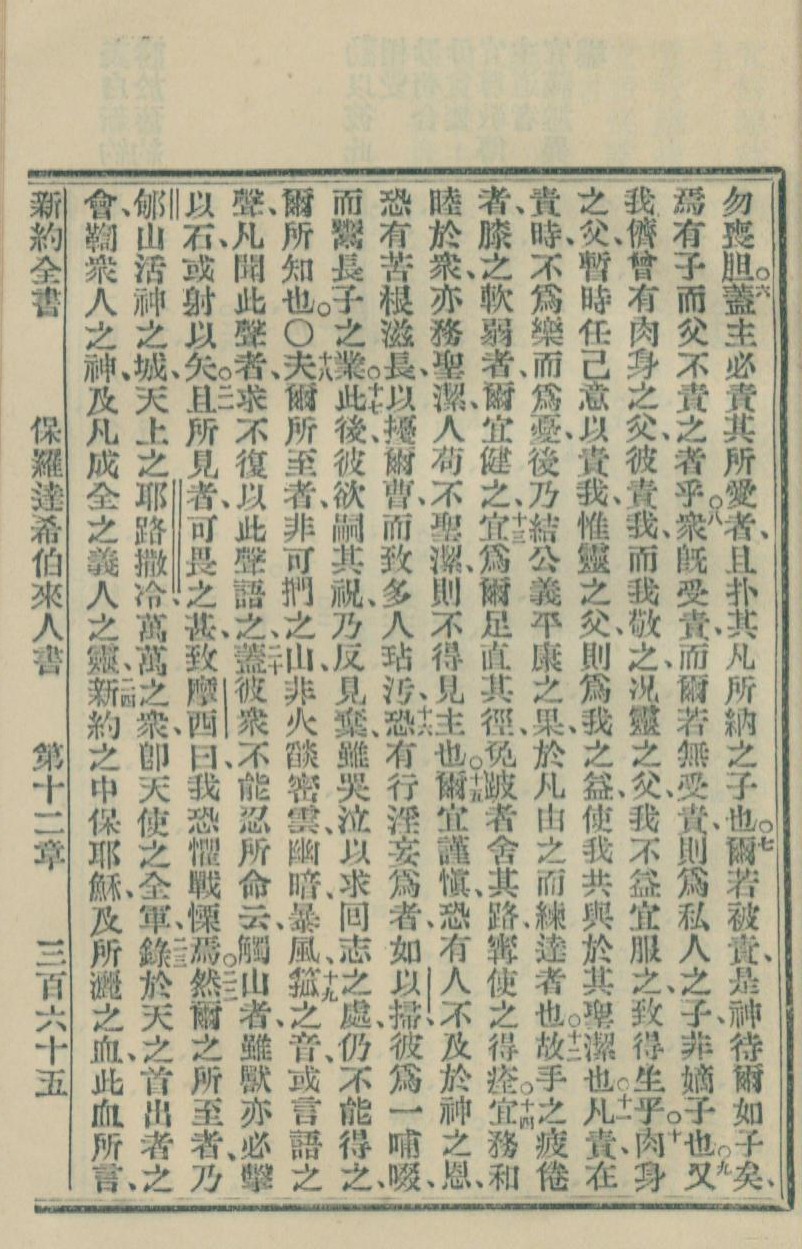 勿喪胆。六蓋主必責其所愛者、且扑其凡所納之子也。七爾若被責、是神待爾如子矣、
焉有子而父不責之者乎。八衆旣受責、而爾若無受責、則爲私人之子、非嫡子也。九又
我儕曾有肉身之父、彼責我、而我敬之、况靈之父、我不益宜服之、致得生乎。十肉身
之父、暫時任己意以責我、惟靈之父、則爲我之益、使我共與於其聖潔也。十一凡責在
責時、不爲樂而爲憂、後乃結公義平康之果、於凡由之而練達者也。十二故手之疲倦
者、膝之軟弱者、爾宜健之、十三宜爲爾足直其徑、免跛者舍其路、寧使之得痊。十四宜務和
睦於衆、亦務聖潔、人苟不聖潔、則不得見主也。十五爾宜謹愼、恐有人不及於神之恩、
恐有苦根滋長、以擾爾曹、而致多人玷汚、十六恐有行淫妄爲者、如以掃、彼爲一哺啜、
而鬻長子之業。十七此後、彼欲嗣其祝、乃反見棄、雖哭泣以求回志之處、仍不能得之、
爾所知也。〇十八夫爾所至者、非可捫之山、非火燄密雲、幽暗、暴風、十九箛之音、或言語之
聲、凡聞此聲者、求不復以此聲語之、二十蓋彼衆不能忍所命云、觸山者、雖獸亦必擊
以石、或射以矢。二一且所見者、可畏之甚、致摩西曰、我恐懼戰慄焉。二二然爾之所至者、乃
郇山活神之城、天上之耶路撒冷、萬萬之衆、卽天使之全軍、二三錄於天之首出者之
會、鞫衆人之神、及凡成全之義人之靈、二四新約之中保耶穌、及所灑之血、此血所言、
新約全書 保羅達希伯來人書 第十二章 三百六十五